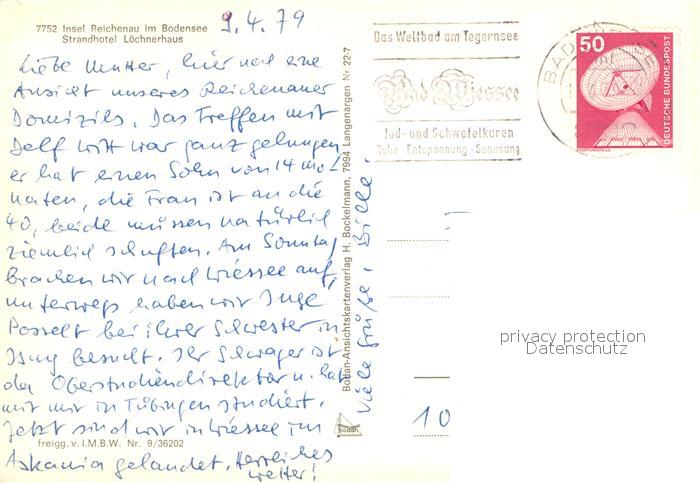 7752 Insel Reichenau im Bodensee
Strandhotel Löchnerhaus
9.4.79
Liebe Mutter, hier noch eine
Ansicht unseres Reichenauer
Domizils. Das Treffen mit
Delf Witt war ganz gelungen
er hat einen Sohn von 14 Mo-
naten, die Frau ist an die
40, beide müssen natürlich
ziemlich schuften. Am Sonntag
brachen wir nach Wiessee auf,
unterwegs haben wir Inge
Posselt bei ihrer Schwester in
Isny besucht. Ihr Schwager ist
da Oberstudiendirektor u. hat
mit mir in Tübingen studiert.
Jetzt sind wir in Wiessee im
Askania gelandet. Herrliches
Wetter!
Viele Grüße,
freigg. v. I.M.B.W. Nr. 9/36202
Bodan-Ansichtskartenverlag H. Bockelmann, 7994 Langenargen Nr 22-7
bodan
Das Weltbad am Tegernsee
Bad Wiessee
Jod- und Schwefelkuren
Ruhe · Entspannung · Genesung
BAD WIESSEE
50
DEUTSCHE BUNDESPOST
ERDEFUNKSTELLE
10
privacy protection
Datenschutz